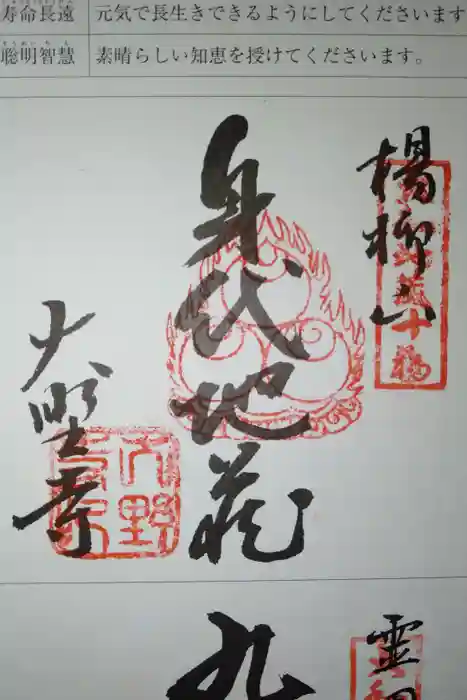 寿命長遠 元気で長生きできるようにしてくださいます
聡明智慧 素晴らしい知恵を授けてくださいます。
楊柳山
身代地蔵
大野寺
大野寺印
九
霊